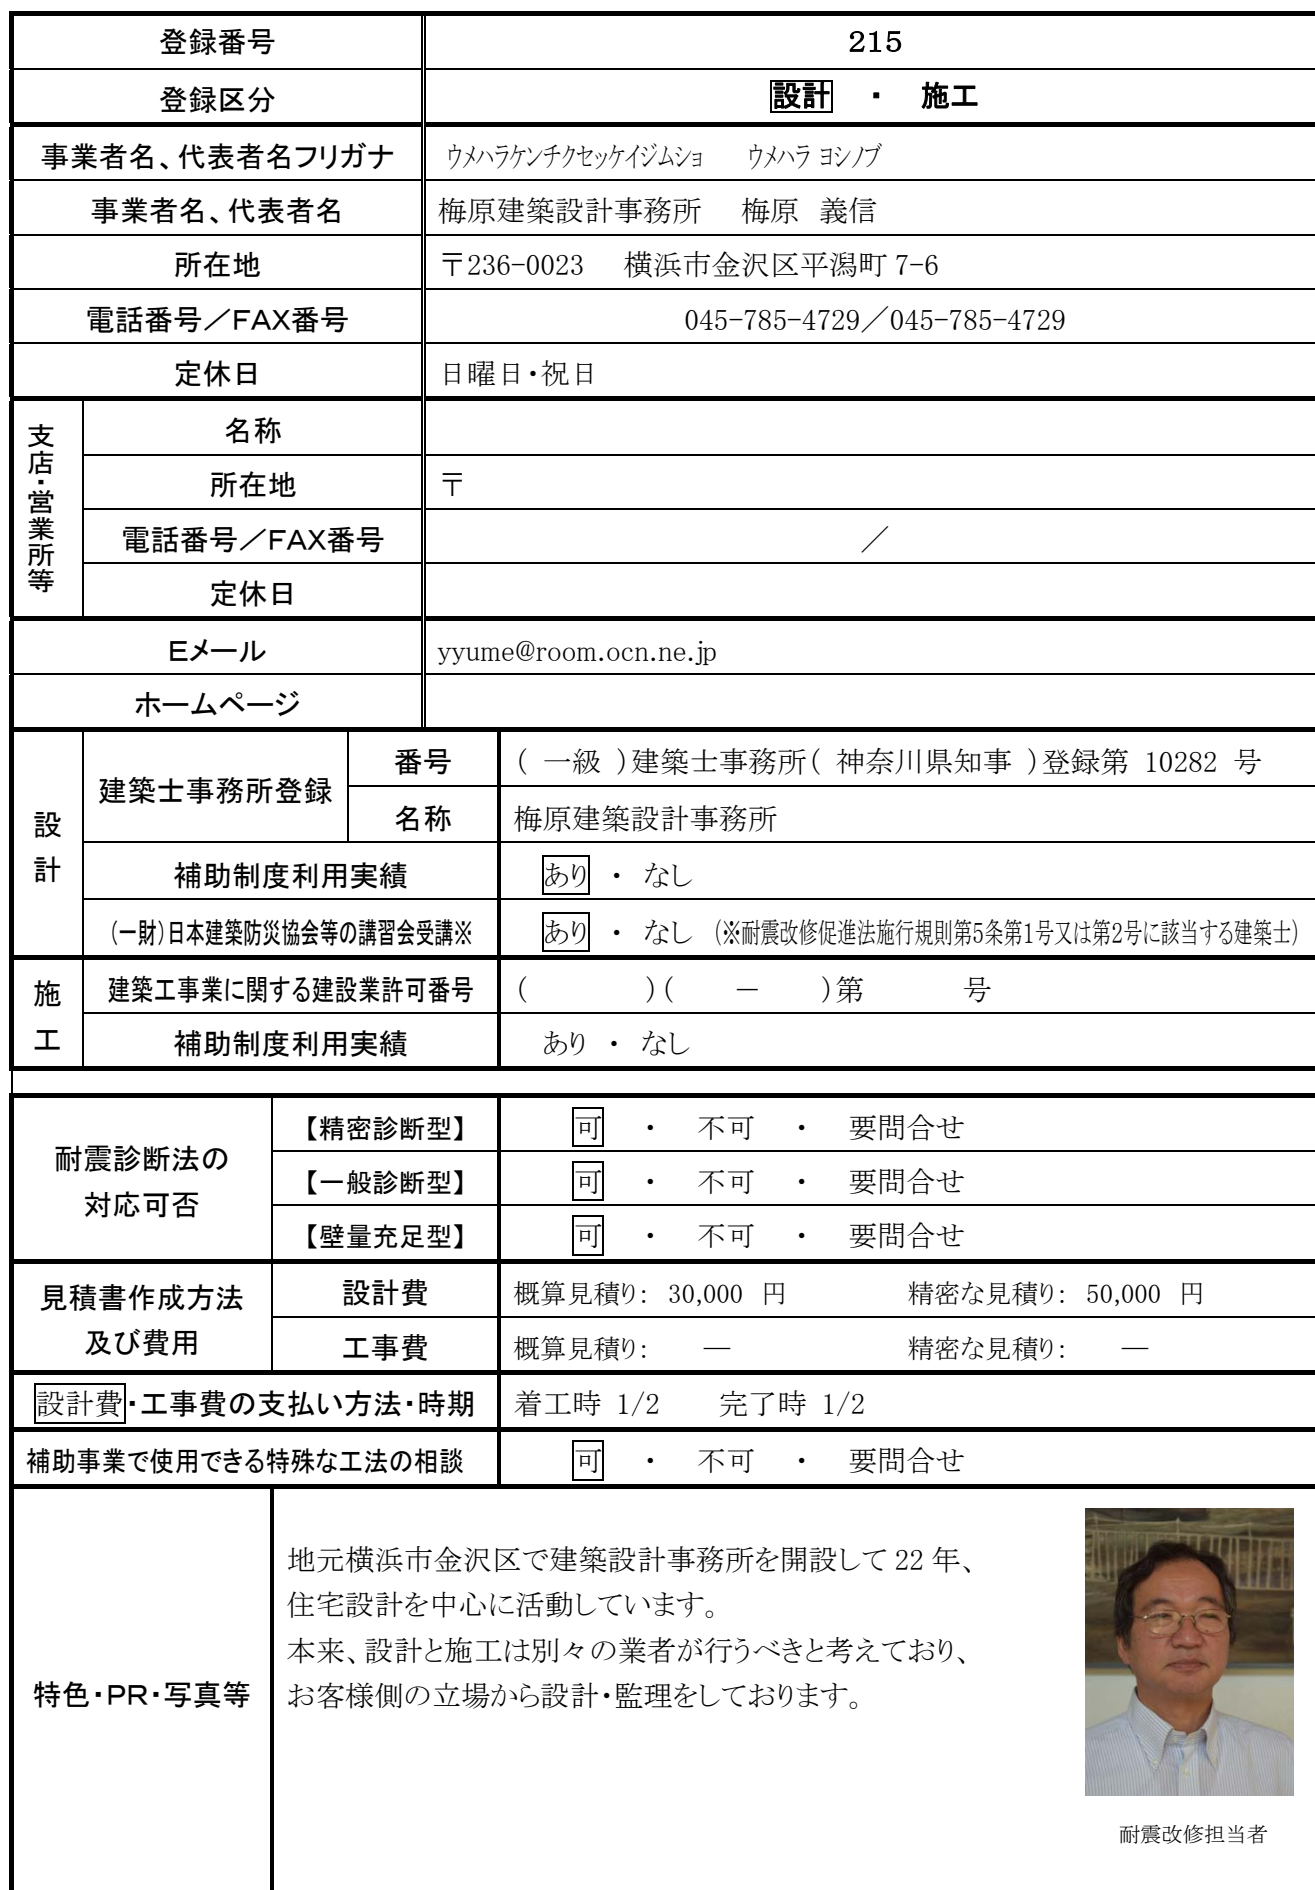 登録番号 215
登録区分 設計 ・ 施工
事業者名、代表者名フリガナ ウメハラケンチクセッケイジムショ ウメハラ ヨシノブ
事業者名、代表者名 梅原建築設計事務所 梅原 義信
所在地 〒236-0023 横浜市金沢区平潟町 7-6
電話番号／FAX番号 045-785-4729／045-785-4729
定休日 日曜日・祝日
支店・営業所等
名称
所在地 〒
電話番号／FAX番号 ／
定休日
Eメール yyume@room.ocn.ne.jp
ホームページ
設計
建築士事務所登録
番号 ( 一級 )建築士事務所( 神奈川県知事 )登録第 10282 号
名称 梅原建築設計事務所
補助制度利用実績 あり ・ なし
(一財)日本建築防災協会等の講習会受講※ あり ・ なし (※耐震改修促進法施行規則第5条第1号又は第2号に該当する建築士)
施工
建築工事業に関する建設業許可番号 ( )( － )第 号
補助制度利用実績 あり ・ なし
耐震診断法の
対応可否
【精密診断型】 可 ・ 不可 ・ 要問合せ
【一般診断型】 可 ・ 不可 ・ 要問合せ
【壁量充足型】 可 ・ 不可 ・ 要問合せ
見積書作成方法
及び費用
設計費 概算見積り: 30,000 円 精密な見積り: 50,000 円
工事費 概算見積り: ― 精密な見積り: ―
設計費・工事費の支払い方法・時期 着工時 1/2 完了時 1/2
補助事業で使用できる特殊な工法の相談 可 ・ 不可 ・ 要問合せ
特色・PR・写真等
地元横浜市金沢区で建築設計事務所を開設して 22 年、
住宅設計を中心に活動しています。
本来、設計と施工は別々の業者が行うべきと考えており、
お客様側の立場から設計・監理をしております。
耐震改修担当者